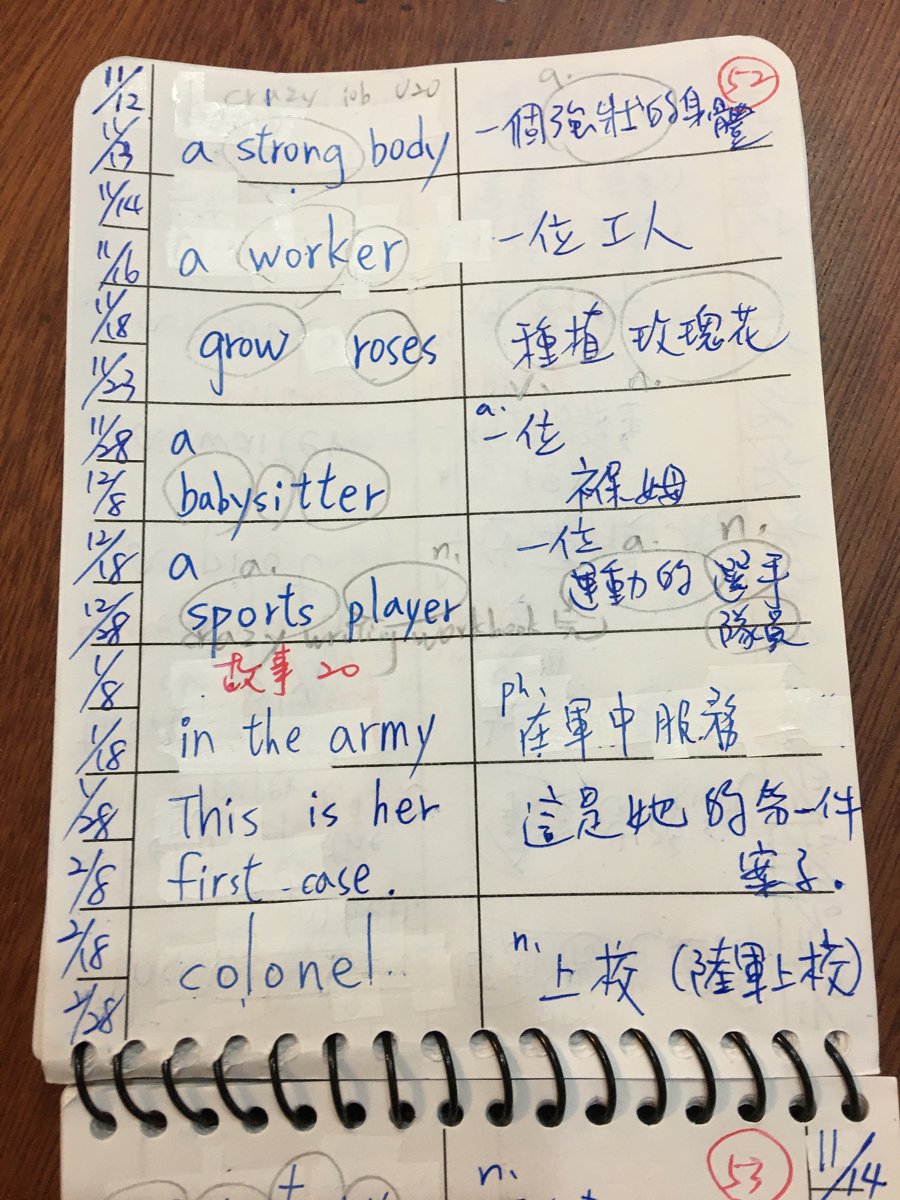 11/12
11/13
11/14
11/16
11/18
11/23
11/28
12/8
12/18
12/28
1/8
1/18
1/28
2/8
2/18
2/28
crazy job U20
a.
52
a strong body
一個強壯的身體
a worker
一位工人
grow roses
種植 玫瑰花
v. n.
a
babysitter
a.
一位
褓姆
a
a. n.
sports player
一位 a. n.
運動的 選手
隊員
crazy writing workbook
故事 20
in the army
ph.
在軍中服務
This is her
first case.
這是她的第一件
案子.
colonel
n.
上校 (陸軍上校)
n.
53
11/14